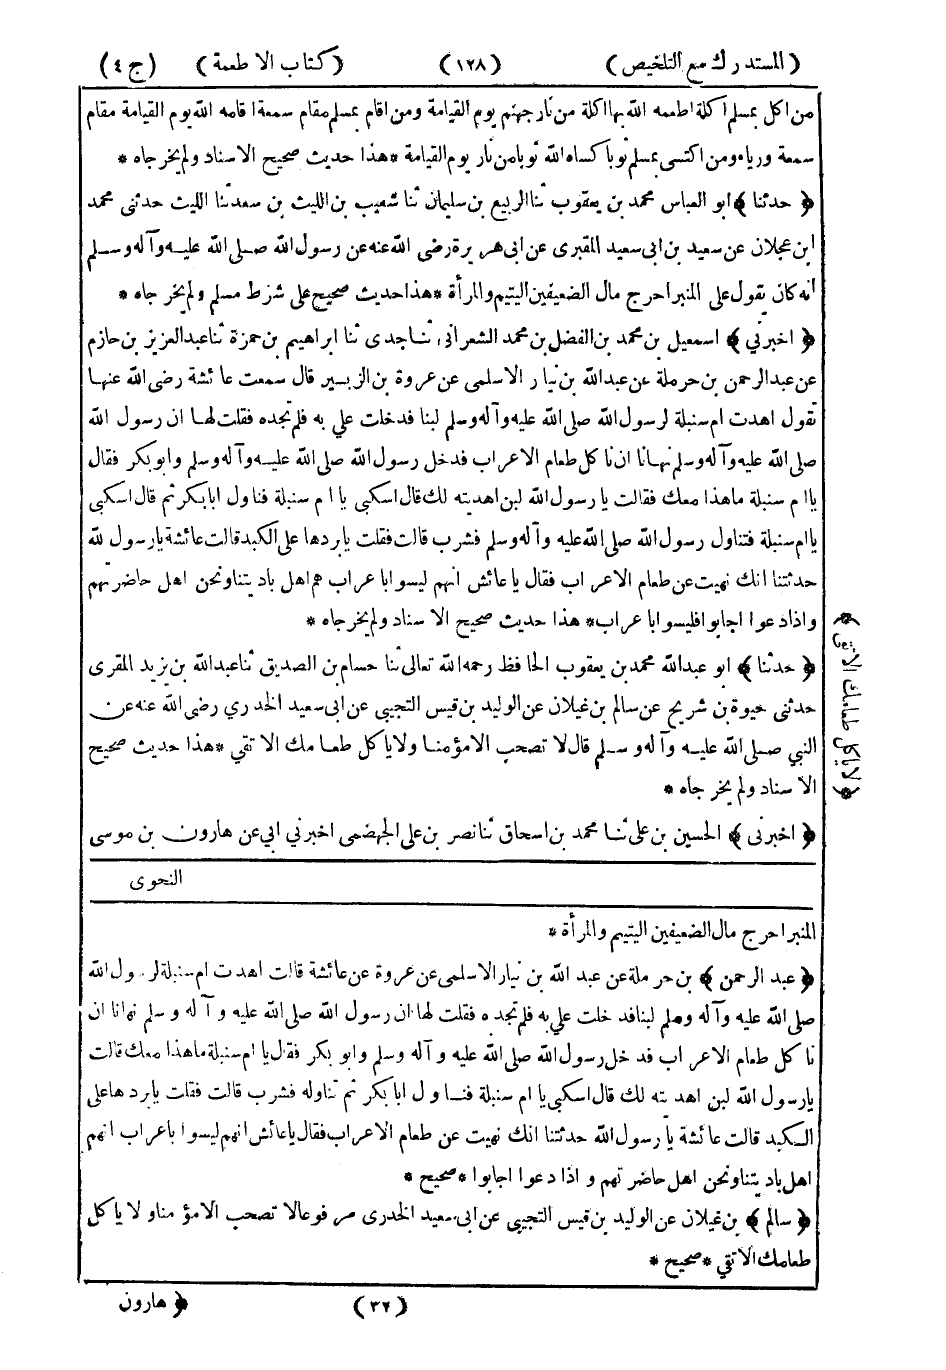 (المستدرك مع التلخيص) (١٢٨) (كتاب الاطعمة) (ج ٤)
من اكل بمسلم اكلة اطعمه الله بها اكلة من نار جهنم يوم القيامة ومن اقام بمسلم مقام سمعة اقامه الله يوم القيامة مقام
سمعة ورياء ومن اكتسى بمسلم ثوبا كساه الله ثوبا من نار يوم القيامة * هذا حديث صحيح الاسناد ولم يخرجاه *
﴿ حدثنا ﴾ ابو العباس محمد بن يعقوب ثنا الربيع بن سليمان ثنا شعيب بن الليث بن سعد ثنا الليث حدثني محمد
ابن عجلان عن سعيد بن ابى سعيد المقبرى عن ابى هريرة رضى الله عنه عن رسول الله صلى الله عليه وآله وسلم
انه كان يقول على المنبر احرج مال الضعيفين اليتيم والمرأة * هذا حديث صحيح على شرط مسلم ولم يخرجاه *
﴿ اخبرني ﴾ اسمعيل بن محمد بن الفضل بن محمد الشعرانى ثنا جدى ثنا ابراهيم بن حمزة ثنا عبد العزيز بن حازم
عن عبد الرحمن بن حرملة عن عبد الله بن نيار الاسلمى عن عروة بن الزبير قال سمعت عائشة رضى الله عنها
تقول اهدت ام سنبلة لرسول الله صلى الله عليه وآله وسلم لبنا فدخلت علي به فلم تجده فقلت لها ان رسول الله
صلى الله عليه وآله وسلم نهانا ان نا كل طعام الاعراب فدخل رسول الله صلى الله عليه وآله وسلم وابو بكر فقال
يا ام سنبلة ما هذا معك فقالت يا رسول الله لبن اهديته لك قال اسكبي يا ام سنبلة فناول ابا بكر ثم قال اسكبى
يا ام سنبلة فتناول رسول الله صلى الله عليه وآله وسلم فشرب قالت فقلت يا بردها على الكبد قالت عائشة يا رسول لله
حدثتنا انك نهيت عن طعام الاعراب فقال يا عائش انهم ليسوا باعراب هم اهل باديتنا ونحن اهل حاضرتهم
واذا دعوا اجابوا فليسوا باعراب * هذا حديث صحيح الاسناد ولم يخرجاه *
﴿ حدثنا ﴾ ابو عبد الله محمد بن يعقوب الحافظ رحمه الله تعالى ثنا حسام بن الصديق ثنا عبد الله بن يزيد المقرى
حدثنى حيوة بن شريح عن سالم بن غيلان عن الوليد بن قيس التجيبى عن ابى سعيد الخدري رضى الله عنه عن
النبي صلى الله عليه وآله وسلم قال لا تصحب الا مؤمنا ولا ياكل طعامك الا تقي * هذا حديث صحيح
الاسناد ولم يخرجاه *
﴿ اخبرنى ﴾ الحسين بن على ثنا محمد بن اسحاق ثنا نصر بن على الجهضمى اخبرني ابي عن هارون بن موسى
النحوى
﴿ لا ياكل طعامك الا تقى ﴾
المنبر احرج مال الضعيفين اليتيم والمرأة *
﴿ عبد الرحمن ﴾ بن حرملة عن عبد الله بن نيار الاسلمى عن عروة عن عائشة قالت اهدت ام سنبلة لرسول الله
صلى الله عليه وآله وسلم لبنا فدخلت علي به فلم تجده فقلت لها ان رسول الله صلى الله عليه وآله وسلم نهانا ان
نا كل طعام الاعراب فدخل رسول الله صلى الله عليه وآله وسلم وابو بكر فقال يا ام سنبلة ما هذا معك قالت
يا رسول الله لبن اهديته لك قال اسكبي يا ام سنبلة فناول ابا بكر ثم تناوله فشرب قالت فقلت يا بردها على
الكبد قالت عائشة يا رسول الله حدثتنا انك نهيت عن طعام الاعراب فقال يا عائش انهم ليسوا باعراب انهم
اهل باديتنا ونحن اهل حاضرتهم واذا دعوا اجابوا * صحيح *
﴿ سالم ﴾ بن غيلان عن الوليد بن قيس التجيبى عن ابى سعيد الخدرى مرفوعا لا تصحب الا مؤمنا ولا ياكل
طعامك الا تقي * صحيح *
(٣٢) ﴿ هارون